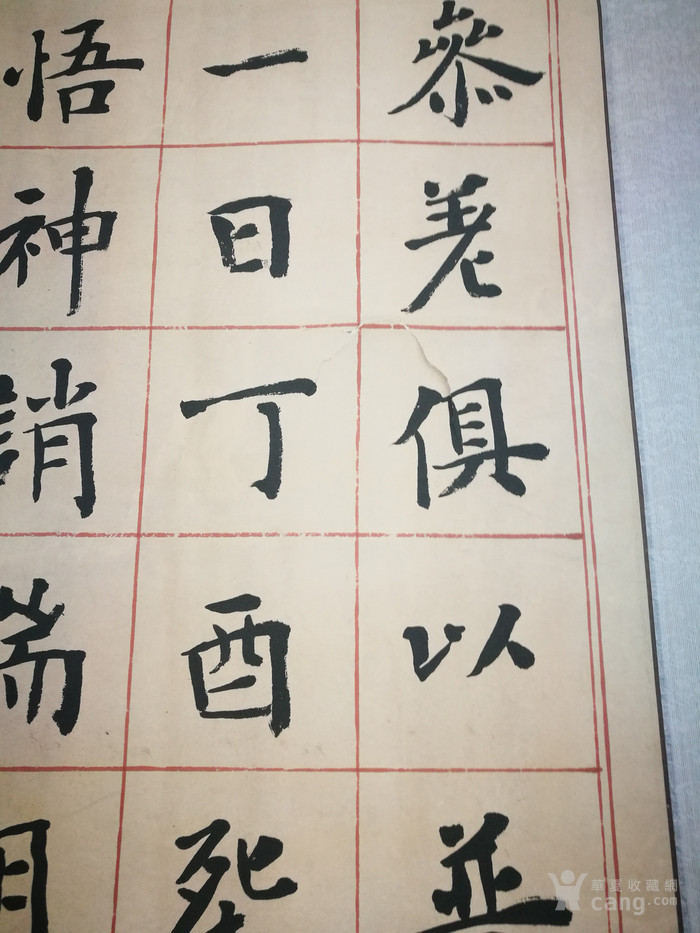 參差俱以並
一日丁酉
悟神誚
華夏收藏網
cang.com